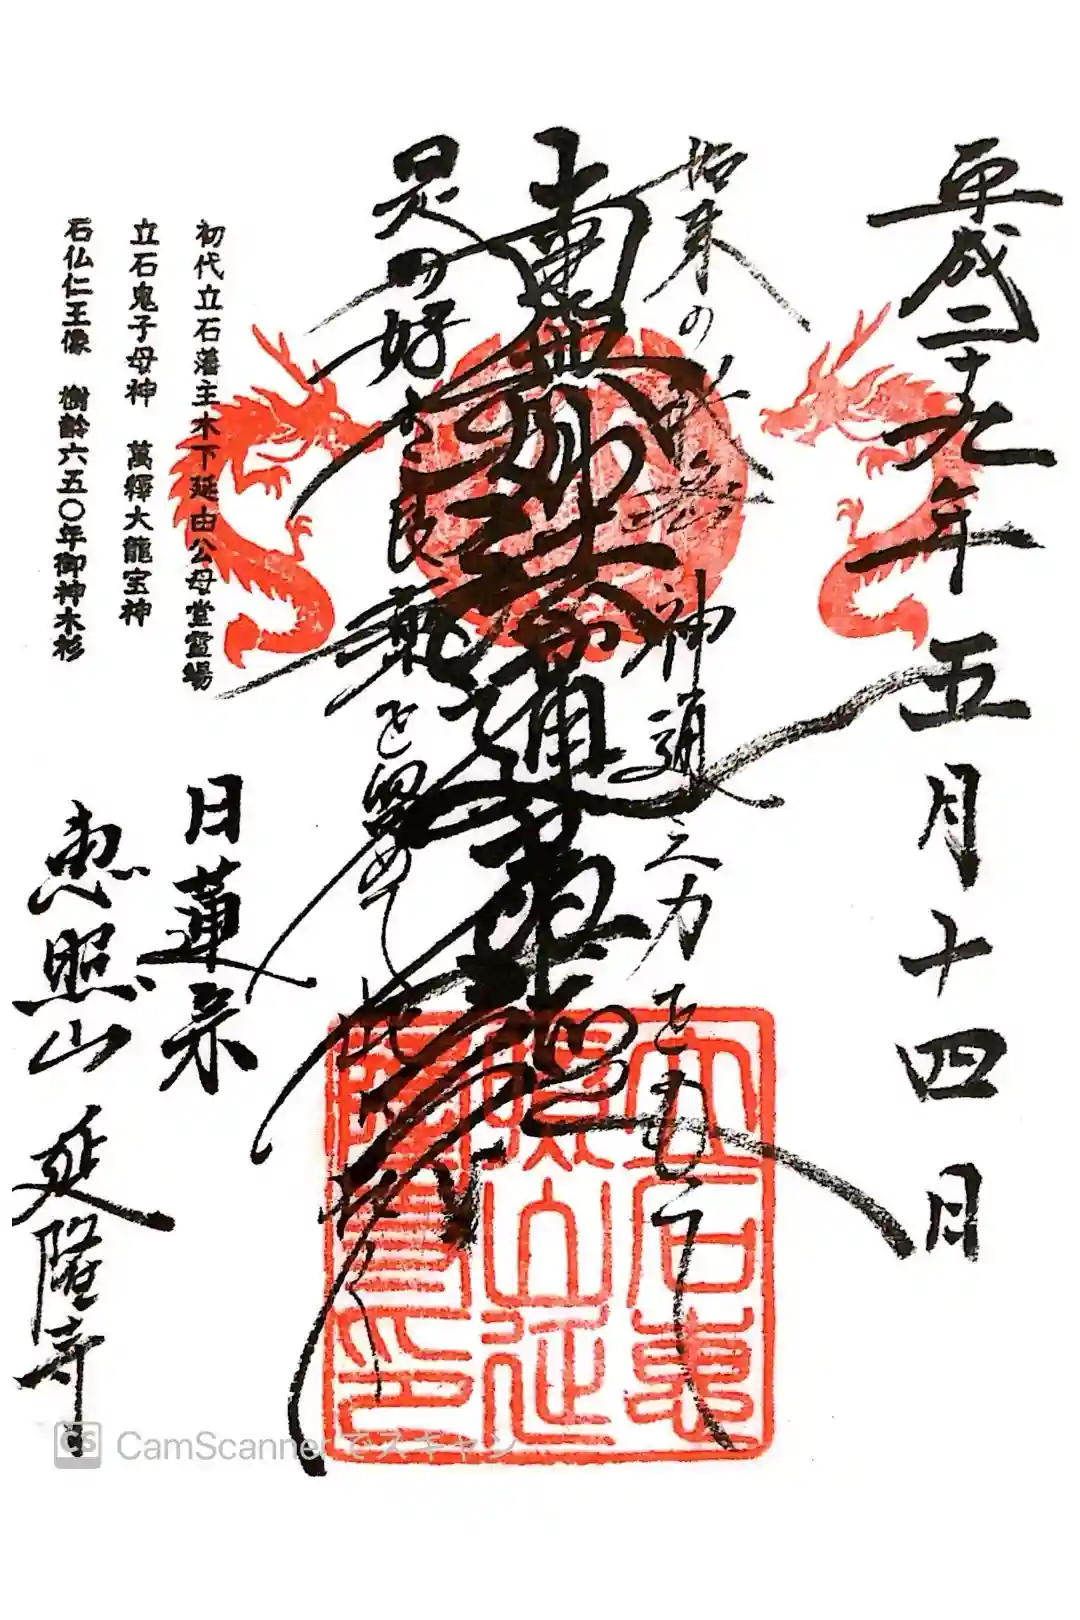 平成二十九年五月十四日
如来の秘密神通之力をもって
南無妙法蓮華経
是の好き良薬を留めて
初代立石藩主木下延由公母堂霊場
立石鬼子母神　萬釋大龍宝神
石仏仁王像　樹齢六五〇年御神木杉
日蓮宗
恵照山 延隆寺
立石惠
照山延
隆寺印
CS CamScannerでスキャン